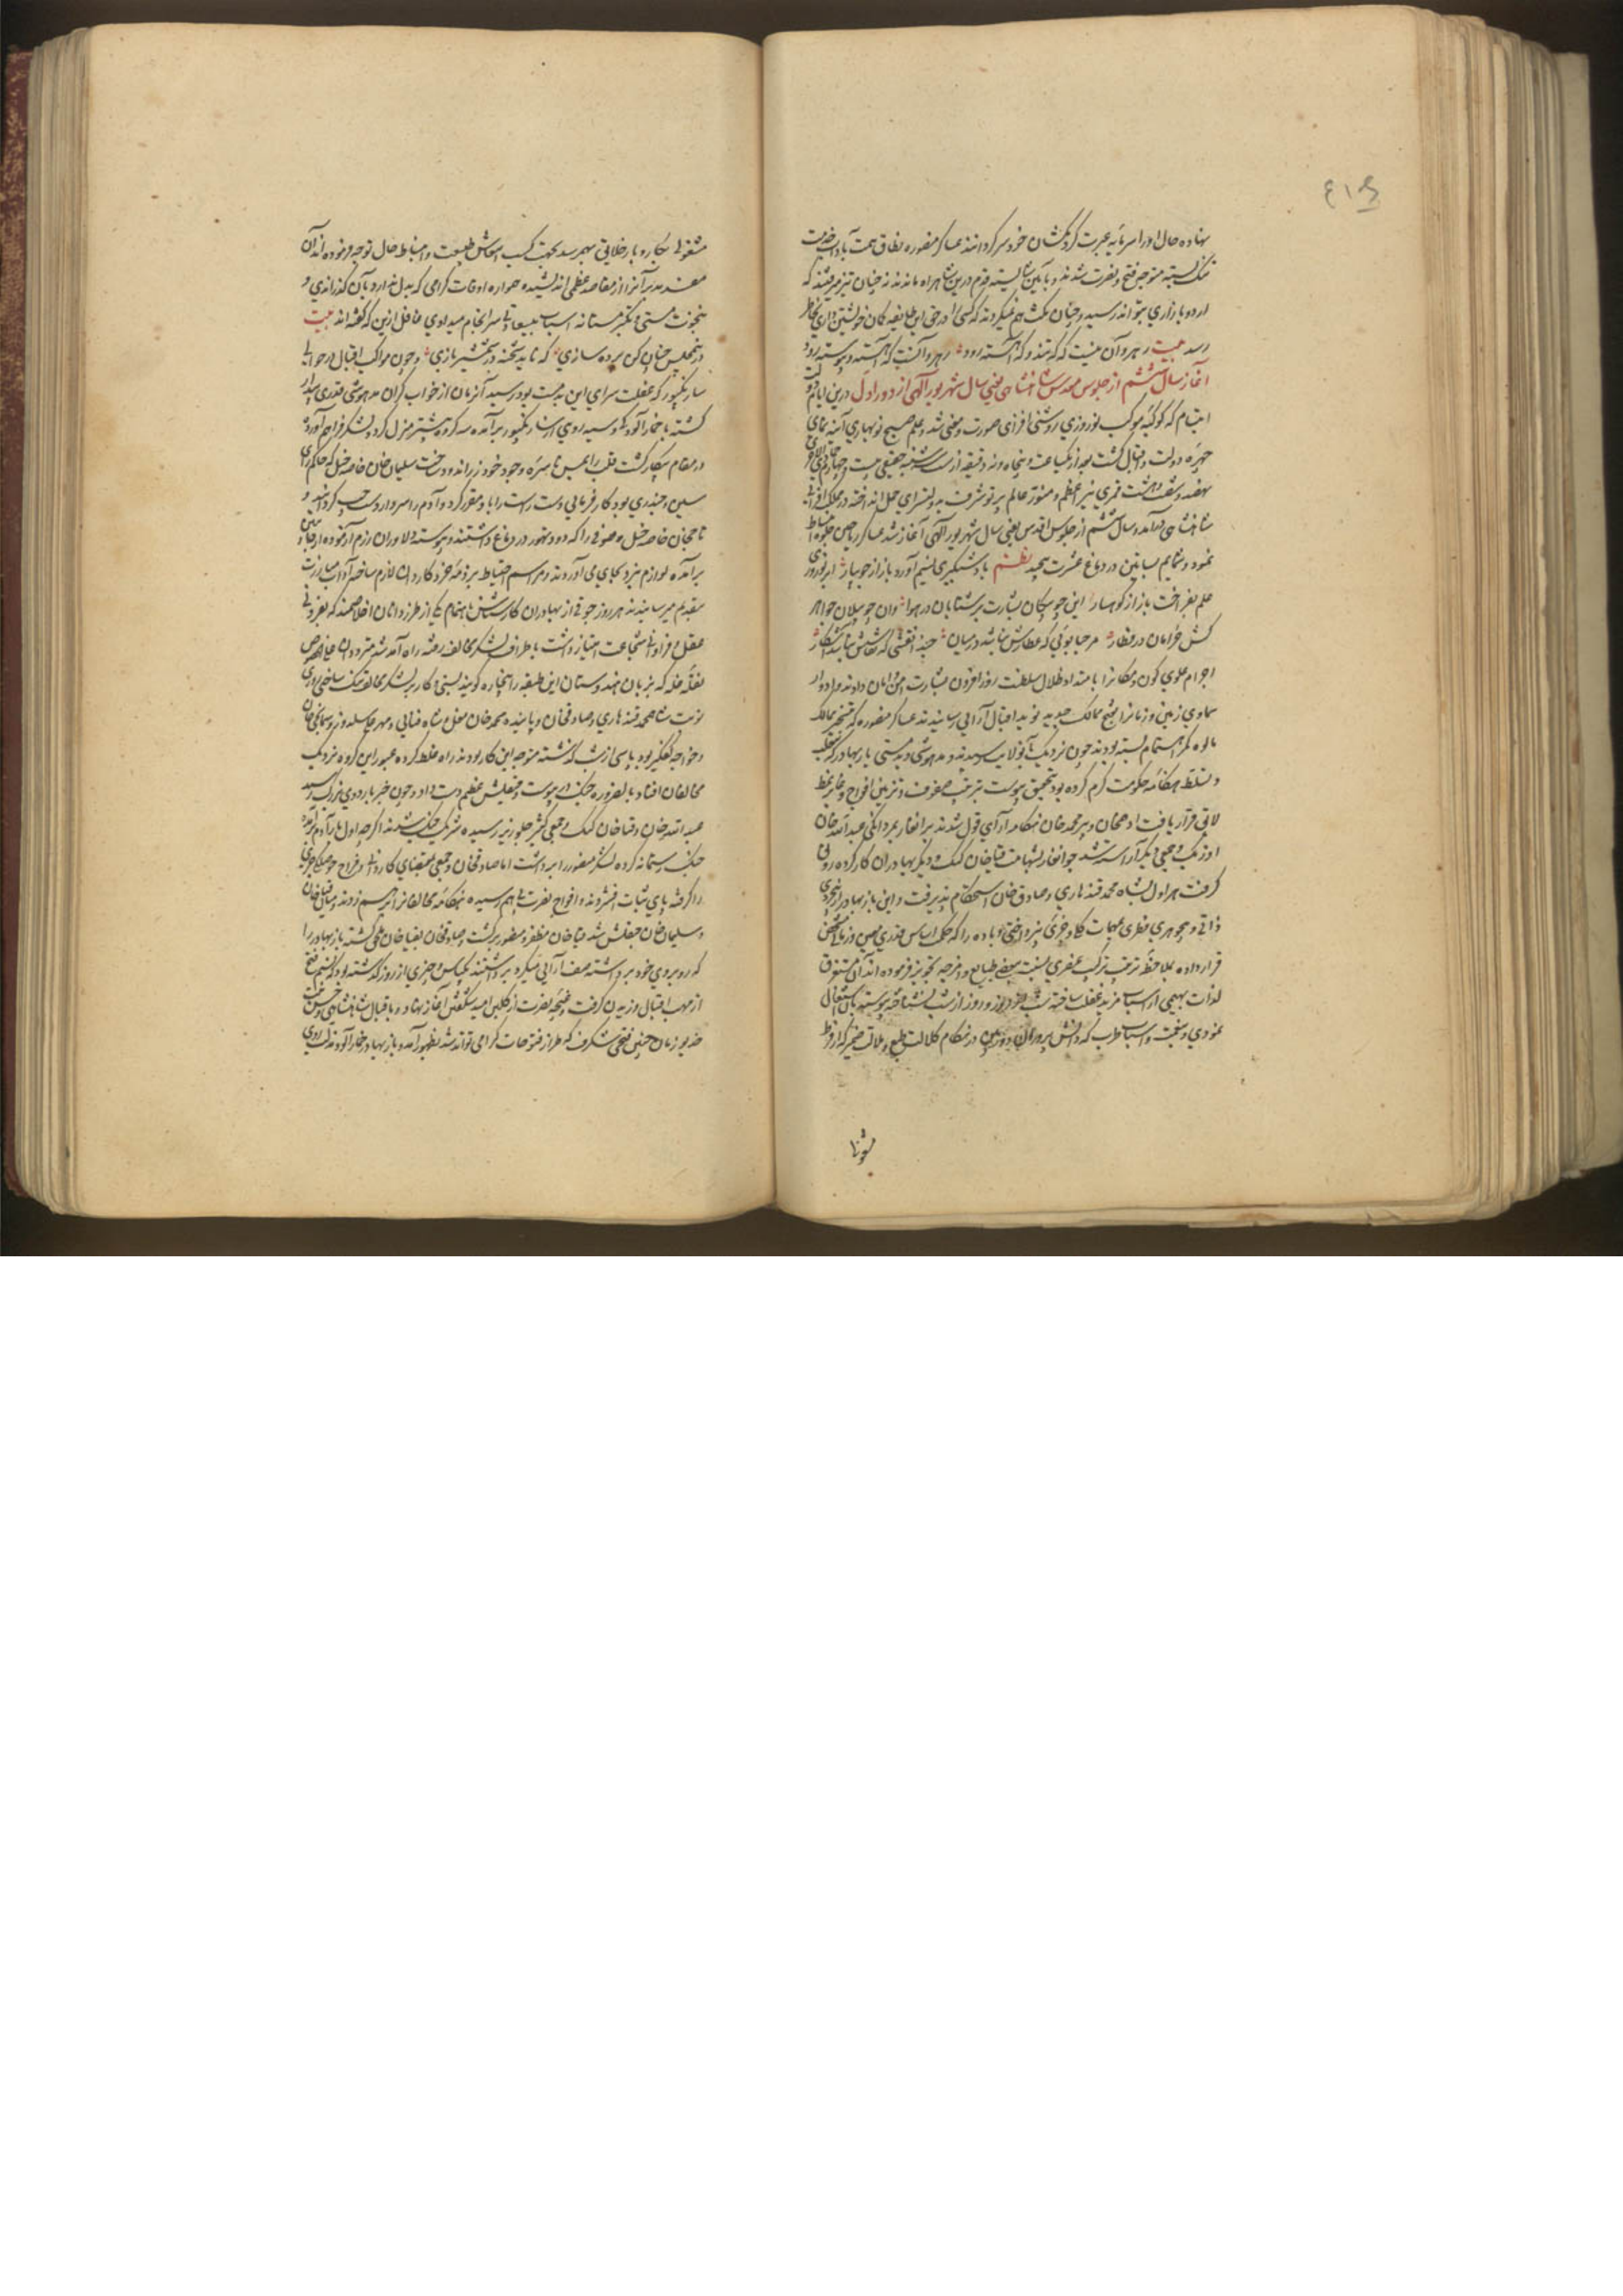 نهاده حال او را سرمایه عبرت گردنکشان خودسر گردانند عساکر منصوره نطاق همت بآداب خدمت
تنگ بسته متوجه فتح و نصرت شدند و بآئین شایسته قدم درین شاهراه ماندند نه چنان تیز میرفتند که
اردو بازاری نتواند رسید و چنان مکث هم نمیکردند که کسی را در حق این طایفه گمان خویشتن داری بخاطر
رسد بیت رهرو آن نیست که گه تند و گه آهسته رود رهرو آنست که آهسته و پیوسته رود
آغاز سال ششم از جلوس مقدس شاهنشاهی یعنی سال شهریور آلهی از دور اول درین ایام دولت
که کوکبه موکب نوروزی روشنی افزای صورت و معنی شد و علم صبح نوبهاری آئینه نمای
چهره دولت و اقبال گشت بعد از یکساعت و پنجاه و نه دقیقه از سه شنبه بیست و چهارم
نهصد و شصت و هشت قمری نیر اعظم و منور عالم پرتو شرف بدولتسرای حمل انداخته
شاهنشاهی درآمد و سال ششم از جلوس اقدس یعنی سال شهریور آلهی آغاز شد
نمود و شمایم بساتین در دماغ عشرت پیچید نظم باد شبگیری نسیم آورد باز از جویبار ابر نوروزی
علم بفراخت باز از کوهسار این چو پیکان بشارت بر شتابان در هوا وان چو پیلان جواهر
کش خرامان در قطار مرحبا بوئی که عطارش نباشد در میان حبذا نقشی که نقاشش نباشد آشکار
اجرام علوی کون و مکانرا بامتداد ظلال سلطنت روزافزون بشارت امن و امان دادند و ادوار
سماوی زمین و زمانرا بفتح ممالک جدید نوید اقبال آرایی رسانیدند عساکر منصوره که بتسخیر ممالک
مالوه کمر اهتمام بسته بودند چون نزدیک بآنولایت رسیدند و مدهوشی و بدمستی باز بهادر که بتغلب
و تسلط هنگامه حکومت گرم کرده بود بتحقیق پیوست بترتیب صفوف و تزیین افواج
لایق قرار یافت ادهم خان و پیر محمد خان هنگامه آرای قول شدند برانغار بمردانگی عبدالله خان
اوزبک و جمعی دیگر آراسته شد جوانغار بشهامت قیا خان کنگ و دیگر بهادران کار کرده رونق
گرفت هراول بشاه محمد قندهاری و صادق خان استحکام پذیرفت و این باز بهادر از بیخردی
ذاتی و بیجوهری فطری بمهمات کلی و جزئی نپرداختی و باده را که حکما اساس قدری معین در زمانی مشخص
قرار داده بملاحظه ترتیب ترکیب عنصری نسبت ببعضی طبایع و امزجه تجویز فرموده اند آن مستغرق
لذات بهیمی از اسباب مزید غفلت ساخته شب از روز و روز از شب نشناخته پیوسته بآن اشتغال
نمودی و نغمت و اسباب طرب که دانش پروران دوربین در هنگام کلالت طبع و ملالت ضمیر که از فرط
مشغولی بکار و بار خلایق بهم رسد بجهت کسب انتعاش طبیعت و انبساط حال توجه فرموده اند آن
مفسد مدبر آنرا از مقاصد عظمی اندیشیده همواره اوقات گرامی که بدل ندارد بآن گذرانیدی و
بنخوت مستی و تکبر مستانه اسباب سرانجام میدادی غافل ازین که گفته اند بیت
در مجلس چنان کن پرده سازی که ناید شحنه در شمشیر بازی و چون مواکب اقبال در حوالی
سارنگپور که غفلت سرای این بدمست بود رسید آنزمان از خواب گران مدهوشی قدری بیدار
گشته با خمار آلودگی و سیه روئی از سارنگپور برآمده سه کروه پیشتر منزل کرد و لشکر فراهم آورده
در مقام پیکار گشت قلب را بهمین ناسره وجود خود زر اندود ساخت سلیم خان خاصه خیل که حاکم
بود کارفرمایی دست راست را باو مقرر کرد و آدم را سردار دست چپ گردانید و
تاج خان خاصه خیل و صوفی را که دود تهور در دماغ داشتند و پیوسته دلاوران رزم آزموده از جانبین
برآمده لوازم نبرد بجای می آوردند و مراسم احتیاط بر ذمه خود کاردان لازم ساخته آداب مبارزت
بتقدیم میرسانیدند هر روز جوقی از بهادران کار شناس باهتمام یکی از طرز دانان اخلاصمند که بفزونی
عقل و فراوانی شجاعت امتیاز داشت باطراف لشکر مخالف رفته راه آمد شد متردد ان علی الخصوص
نقله غله که بزبان هندوستان این طبقه را بنجاره گویند بستی و کار بر لشکر مخالف تنگ ساختی روزی
نوبت شاه محمد قندهاری و صادقخان و پاینده محمد خان مغل و شاه فنایی و مهرعلی سلدوز و سمانجی خان
و خواجه بود پاسی از شب گذشته متوجه این کار بودند راه غلط کرده عبور این گروه نزدیک
مخالفان افتاد بالضروره جنگ در پیوست و چپقلش عظیم دست داد و چون خبر باردوی بزرگ رسید
عبدالله خان و قیا خان کنگ و جمعی کثیر جلوریز رسیده شریک جنگ شدند اگرچه اول بار آدم
جنگ رستمانه کرده لشکر منصور را برداشت اما صادقخان و جمعی بمقتضای کاردانی
را گرفته پای ثبات افشردند و افواج نصرت باهم رسیده هنگامه مخالفانرا برهم زدند و میان قیا خان
و سلیم خان چپقلش شد قیا خان مظفر و منصور برگشت و صادقخان بقیا خان ملحق گشته باز بهادر را
که روبروی خود برداشته صف آرایی میکرد برداشتند یکپاس و چیزی از روز گذشته بود که نسیم فتح
از مهب اقبال وزیدن گرفت و غنچه نصرت از گلبن امید شگفتن آغاز نهاد و باقبال شاهنشاهی و حسن نیت
خدیو زمان چنین فتحی شگرف که طراز فتوحات گرامی تواند شد بظهور آمد و باز بهادر خمارآلود